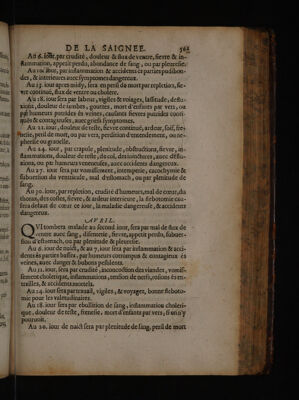 DE LA SAIGNEE. 562
Au 6. iour, par crudité, douleur & flux de ventre, fievre & in-
flammation, appetit perdu, abondance de sang, ou par pleuresie.
Au 10. iour, par inflammation & accidents és parties pudibon-
des, & interieures avec symptomes dangereux.
Au 15. iour apres midy, sera en peril de mort par repletion, fie-
vre continuë, flux de ventre ou cholere.
Au 18. iour sera par labeur, vigiles & voyages, lassitude, deflu-
xions, douleur de iambes, gouttes, mort d'enfans par vers, ou
par humeurs putrides és veines, causants fievres putrides conti-
nuës & contagieuses, avec griefs symptomes.
Au 22. iour, douleur de teste, fievre continuë, ardeur, soif, fre-
nesie, peril de mort, ou par vers, perdition d'entendement, ou ne-
phresie ou gravelle.
Au 24. iour, par crapule, plenitude, obstructions, fievre, in-
flammations, douleur de teste, du col, des ioinctures, avec deflu-
xions, ou par humeurs venteuses, avec accidents dangereux.
Au 27. iour sera par vomissement, intemperie, cacochymie &
subuertion du ventricule, mal d'estomach, ou par plenitude de
sang.
Au 30. iour, par repletion, crudité d'humeurs, mal de cœur, du
thorax, des costes, fievre, & ardeur interieure, la flebotomie cau-
sera defaut de cœur ce iour, la maladie dangereuse, & accident
dangereux.
AVRIL.
QVI tombera malade au second iour, sera par mal de flux de
ventre avec sang, disenterie, fievre, appetit perdu, subuer-
sion d'estomach, ou par plenitude & pleuresie.
Au 6. iour de naict, & au 7. iour sera par inflammation & acci-
dents és parties basses, par humeurs corrompus & contagieux és
veines, avec danger & bubons pestilents.
Au 11. iour, sera par crudité, incoction des viandes, vomis-
sement cholerique, inflammations, tension de nerfs, colique és en-
trailles, & accidents mortels.
Au 14. iour sera par travail, vigiles, & voyages, bonne fleboto-
mie pour les valetudinaires.
Au 18. iour sera par ebullition de sang, inflammation choleri-
que, douleur de teste, frenesie, mort d'enfants par vers, si on n'y
pourvoit.
Au 20. iour de naict sera par plenitude de sang, peril de mort